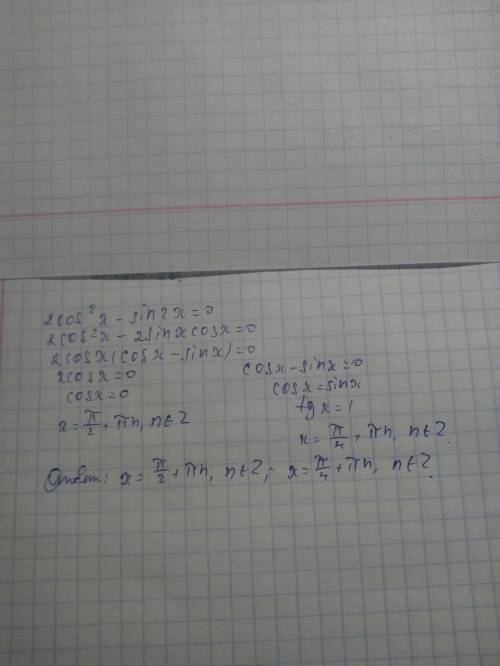 2cos²x - sin2x = 0
2cos²x - 2sinxcosx = 0
2cosx(cosx - sinx) = 0
2cosx = 0 cosx - sinx = 0
cosx = 0 cosx = sinx
tgx = 1
x = π/2 + πn, n∈Z x = π/4 + πn, n∈Z.
Ответ: x = π/2 + πn, n∈Z; x = π/4 + πn, n∈Z.